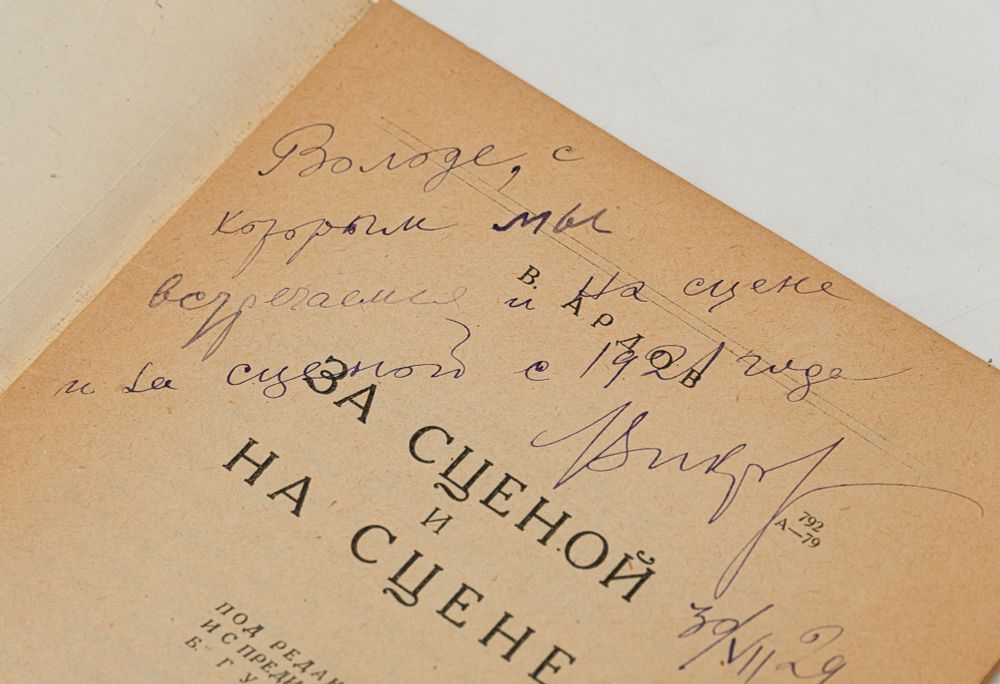 Володе, с
которым мы
встречаемся и на сцене
и за сценой с 1921 года
Виктор
30/VII 29
В. АРДОВ
ЗА СЦЕНОЙ
И
НА СЦЕНЕ
792
А—79
ПОД РЕДАК
И С ПРЕДИ
Б. Г
У